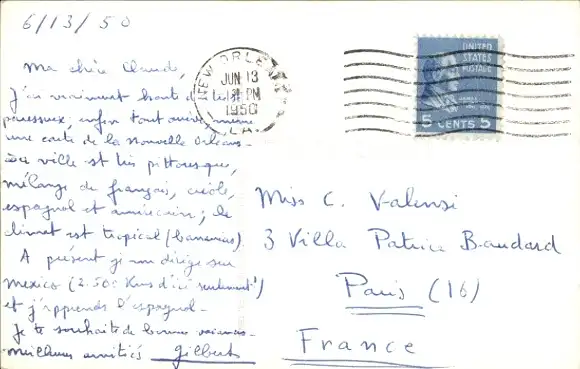 6/13/50
Ma chère Claude,
J'ai vraiment honte d'être
paresseux, enfin tout arrive, même
une carte de la Nouvelle Orléans.
La ville est très pittoresque,
mélange de français, créole,
espagnol et américain; le
climat est tropical (bananas).
A présent je me dirige sur
Mexico (2.500 Kms d'ici seulement!)
et j'apprends l'espagnol.
Je te souhaite de bonnes vacances.
meilleures amitiés Gilbert
NEW ORLEANS
JUN 13
PM
1950
LA.
UNITED
STATES
POSTAGE
5 CENTS 5
Miss C. Valensi
3 Villa Patrice Boudard
Paris (16)
France